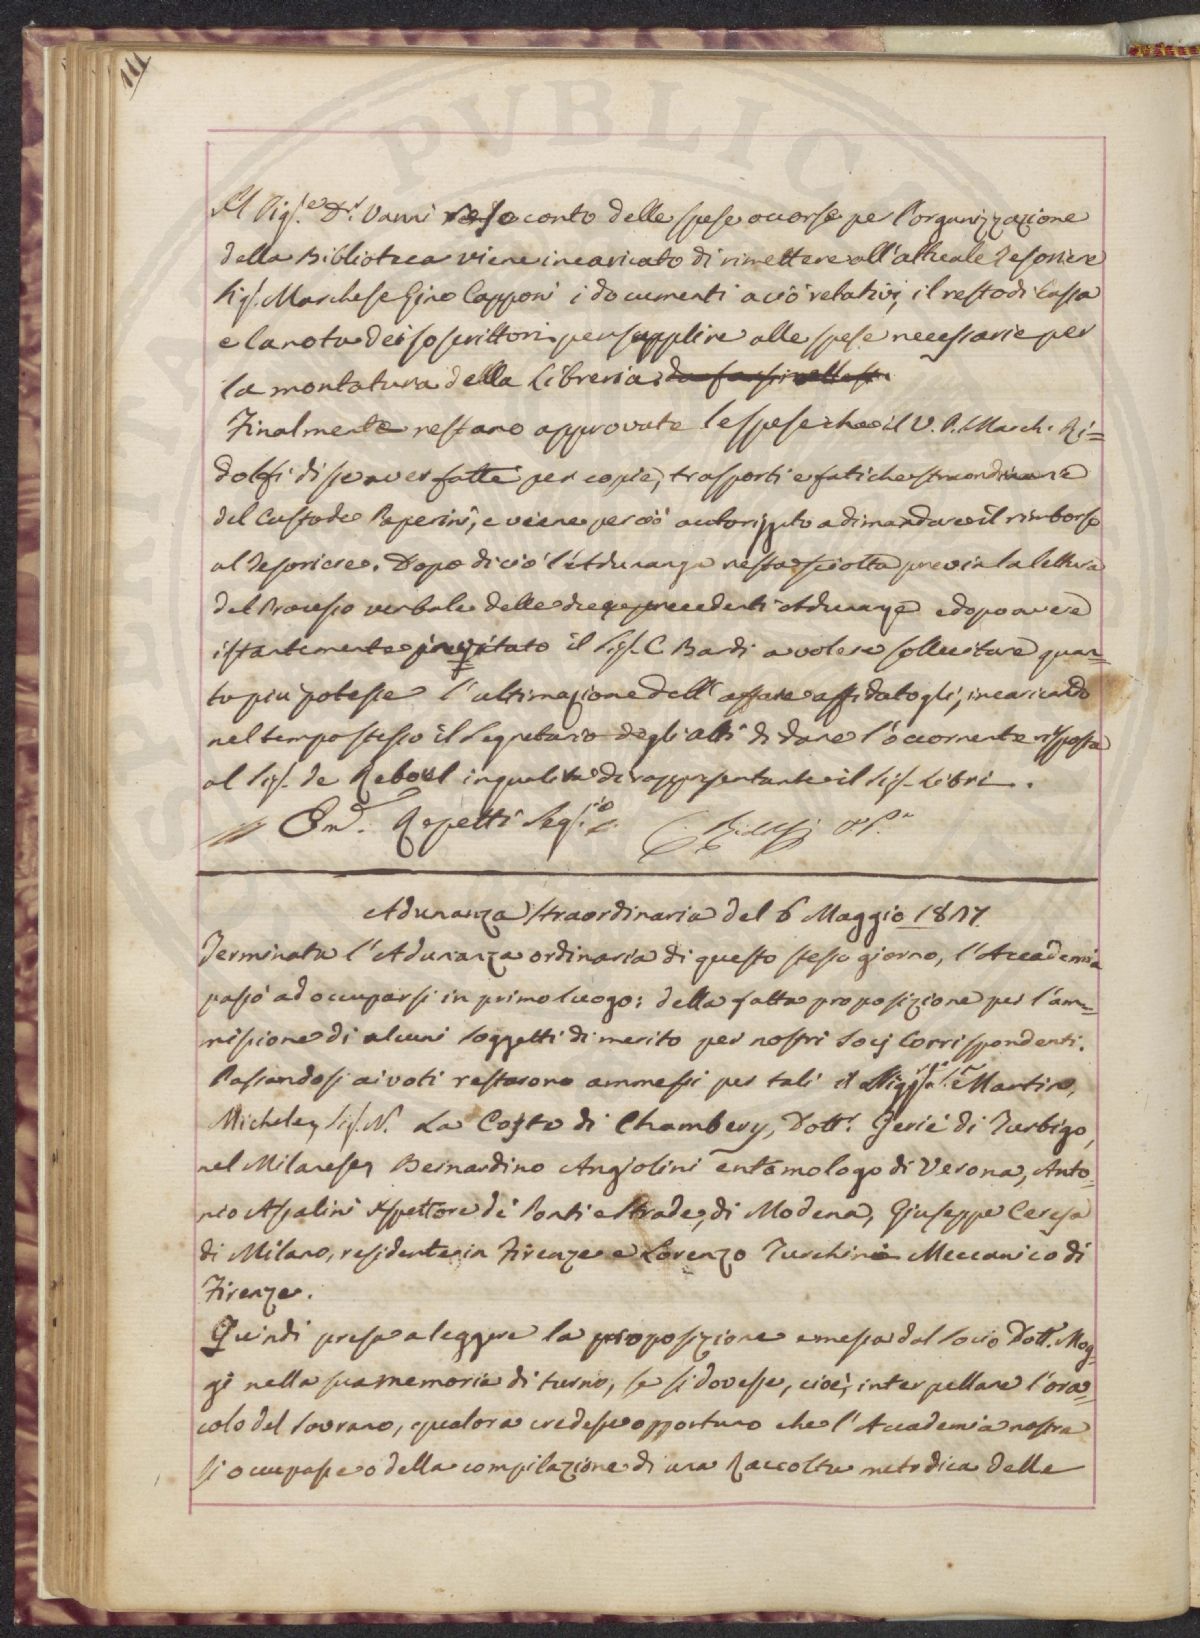 111
Il Sig.e D.r Vanni reso conto delle spese occorse per l'organizzazione
della Biblioteca viene incaricato di rimettere all'attuale Tesoriere
Sig. Marchese Gino Capponi i documenti a ciò relativi, il resto di Cassa
e la nota dei soscrittori per supplire alle spese necessarie per
la montatura della Libreria
Finalmente restano approvate le spese che il V. P. March. Ri=
dolfi disse aver fatte per copie, trasporti e fatiche straordinarie
del Custode Paperini, e viene perciò autorizzato a dimandare il rimborso
al Tesoriere. Dopo di ciò l'Adunanza resta sciolta previa la lettura
del Processo verbale delle due precedenti Adunanze e dopo avere
istantemente invitato il Sig. C. Bardi a volere sollecitare quan=
to più potesse l'ultimazione dell'affare affidatogli, incaricando
nel tempo stesso il Segretario degli Atti di dare l'occorrente risposta
al Sig. de Reboul in qualità di rappresentante il Sig. Libri.
Em. Repetti Seg.rio C. Ridolfi V. P.
Adunanza straordinaria del 6 Maggio 1827
Terminata l'Adunanza ordinaria di questo stesso giorno, l'Accademia
passò ad occuparsi in primo luogo: della fatta proposizione per l'am=
missione di alcuni soggetti di merito per nostri Socj Corrispondenti.
Passandosi ai voti restarono ammessi per tali il Sigg. Martin,
Michele, Sig. N. La Coste di Chambery, Dott. Gerié di Turbigo,
nel Milanese, Bernardino Angiolini entomologo di Verona, Anto=
nio Asalini Ispettore de' Ponti e Strade, di Modena, Giuseppe Ceresa
di Milano, residente in Firenze e Lorenzo Turchini Meccanico di
Firenze.
Quindi prese a leggere la proposizione emessa dal Socio Dott. Mag=
gi nella sua memoria di turno, se si dovesse, cioè, interpellare l'ora=
colo del Sovrano, qualora credesse opportuno che l'Accademia nostra
si occupasse o della compilazione di una Raccolta metodica delle